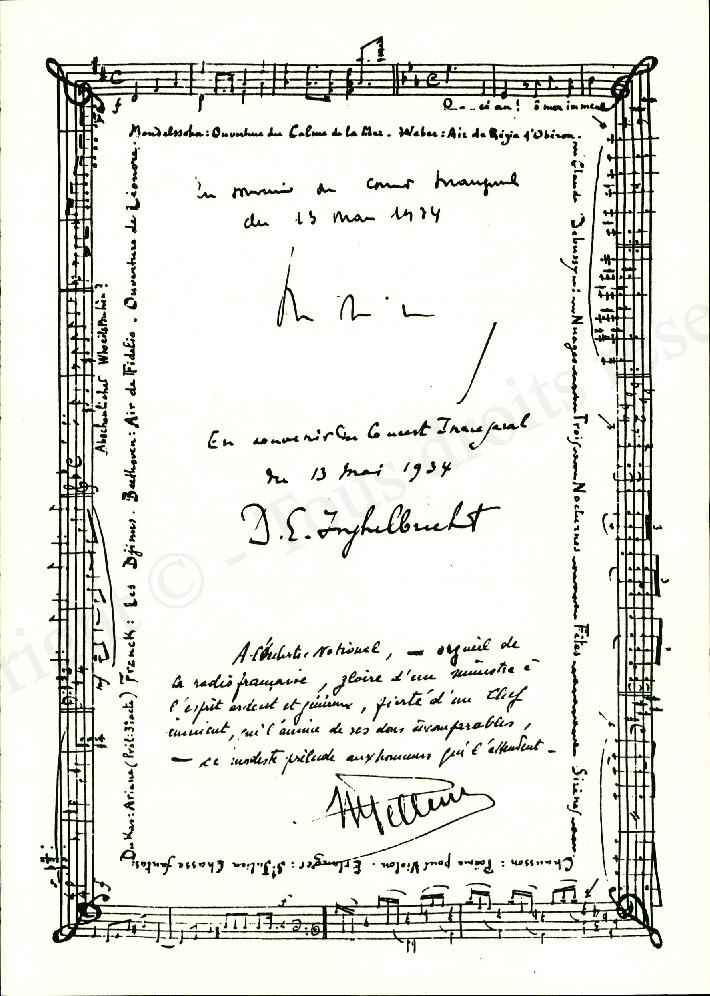 R...... ci an! ô mer immense
Mendelssohn: Ouverture du Calme de la Mer. Weber: Air de Régia d'Obéron.
En souvenir du Concert Inaugural
du 13 Mai 1934
En souvenir du Concert Inaugural
du 13 Mai 1934
D. E. Inghelbrecht
A l'Orchestre National, — orgueil de
la radio française, gloire d'un ministre à
l'esprit ardent et généreux, fierté d'un Chef
éminent, qui l'anime de ses dons incomparables,
— ce modeste prélude aux honneurs qui l'attendent —
Claude Debussy: Nuages Trois Nocturnes Fêtes Sirènes
Chausson: Poème pour Violon. Erlanger: St Julien Chasse fantas.
Dukas: Ariane (Prél. 3e acte) Franck: Les Djinns. Beethoven: Air de Fidelio. Ouverture de Léonore.
Abscheulicher
Copyright © - Tous droits rése